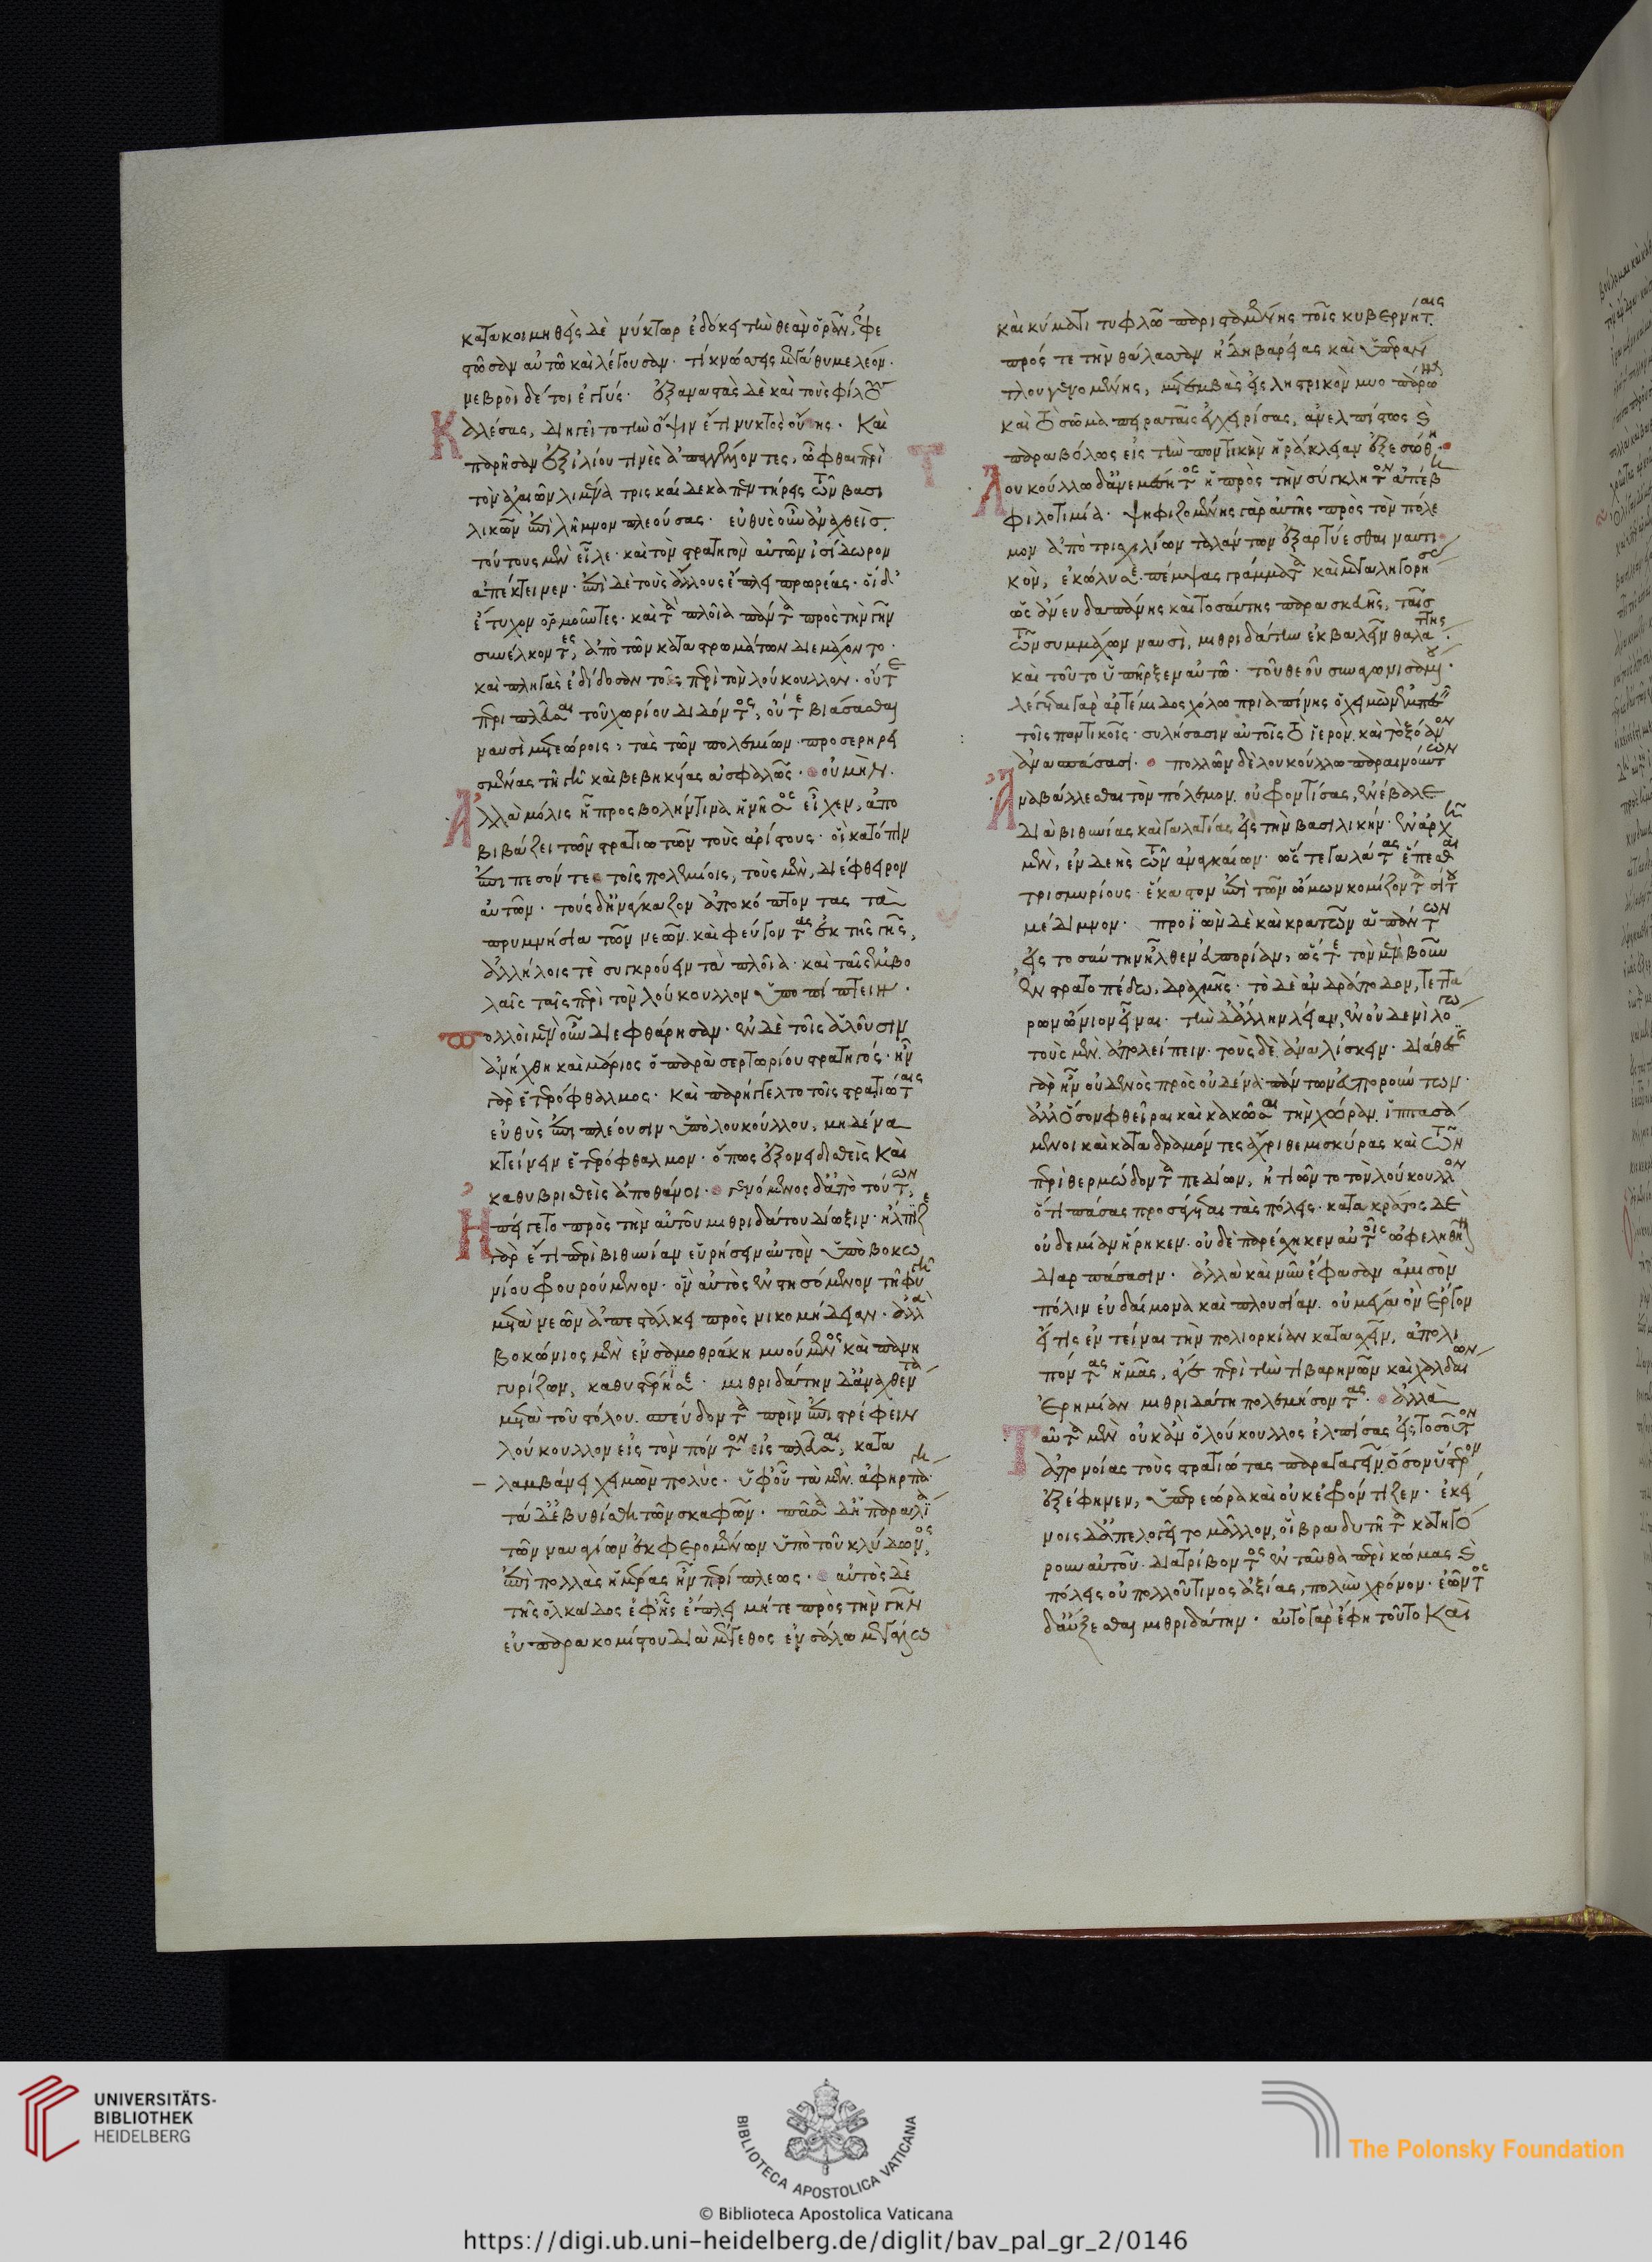 κατακοιμηθεὶς δὲ νύκτωρ ἐδόκει τὴν θεὰν ὁρᾶν, ἐφε
στῶσαν αὐτῶ καὶ λέγουσαν· τί κνώσσεις μεγάθυμε λέον·
νεβροὶ δέ τοι ἐγγύς· ἐξαναστὰς δὲ καὶ τοὺς φίλους
Καλέσας, διηγεῖτο τὴν ὄψιν ἔτι νυκτὸς οὔσης. Καὶ
παρῆσαν ἐξ ἰλίου τινὲς ἀπαγγέλλοντες, ὦφθαι περὶ
τὸν ἀχαιῶν λιμένα τρισκαίδεκα πεντήρεις τῶν βασι
λικῶν ἐπὶ λῆμνον πλεούσας· εὐθὺς οὖν ἀναχθεὶς
τούτους μὲν εἷλε· καὶ τὸν στρατηγὸν αὐτῶν ἰσίδωρον
ἀπέκτεινεν· ἐπὶ δὲ τοὺς ἄλλους ἔπλει πρωρέας· οἱ δ'
ἔτυχον ὁρμοῦντες· καὶ τὰ πλοῖα πάντα πρὸς τὴν γῆν
συνέλκοντες, ἀπὸ τῶν καταστρωμάτων διεμάχοντο·
καὶ πληγὰς ἐδίδοσαν τοῖς περὶ τὸν λούκουλλον· οὔτε
περιπλεῦσαι τοῦ χωρίου διδόντος, οὔτε βιάσασθαι
ναυσὶ μετεώροις, τὰς τῶν πολεμίων προσερηρει
σμένας τῆ γῆ καὶ βεβηκυίας ἀσφαλῶς· οὐ μὴν
Ἀλλὰ μόλις ᾗ προσβολήν τινα ἡ νῆσος εἶχεν, ἀπο
βιβάζει τῶν στρατιωτῶν τοὺς ἀρίστους· οἳ κατόπιν
ἐπιπεσόντες τοῖς πολεμίοις, τοὺς μὲν, διέφθειρον
αὐτῶν· τοὺς δ' ἠνάγκαζον ἀποκόπτοντας τὰ
πρυμνήσια τῶν νεῶν καὶ φεύγοντας ἐκ τῆς γῆς,
ἀλλήλοις τὲ συγκρούειν τὰ πλοῖα· καὶ ταῖς ἐμβο
λαῖς ταῖς περὶ τὸν λούκουλλον ὑποπίπτειν·
Πολλοὶ μὲν οὖν διεφθάρησαν· ἐν δὲ τοῖς ἁλοῦσιν
ἀνήχθη καὶ μάριος ὁ παρὰ σερτωρίου στρατηγός· ἦν
γὰρ ἑτερόφθαλμος· Καὶ παρήγγελτο τοῖς στρατιώταις
εὐθὺς ἐπιπλέουσιν ὑπὸ λουκούλλου, μηδένα
κτείνειν ἑτερόφθαλμον· ὅπως ἐξονειδισθεὶς Καὶ
καθυβρισθεὶς ἀποθάνοι· γενόμενος δ' ἀπὸ τούτων,
Ἠπείγετο πρὸς τὴν αὐτοῦ μιθριδάτου δίωξιν· ἤλπιζε
γὰρ ἔτι περὶ βιθυνίαν εὑρήσειν αὐτὸν ὑπὸ βοκω
νίου φρουρούμενον· ὃν αὐτὸς ἐνστησόμενον τῆ φυγῆ
μετὰ νεῶν ἀπεστάλκει πρὸς νικομήδειαν· ἀλλὰ
βοκώνιος μὲν ἐν σαμοθράκη μυούμενος καὶ πανη
γυρίζων, καθυστέρησε· μιθριδάτην δ' ἀναχθέντα
μετὰ τοῦ στόλου· σπεύδοντα πρὶν ἐπιστρέφειν
λούκουλλον εἰς τὸν πόντον εἰσπλεῦσαι, κατα
λαμβάνει χειμὼν πολύς· ὑφ' οὗ τὰ μὲν ἀφηρπάγη
τὰ δ' ἐβυθίσθη τῶν σκαφῶν· πᾶσα δ' ἡ παραλία
τῶν ναυαγίων ἐκφερομένων ὑπὸ τοῦ κλύδωνος,
ἐπὶ πολλὰς ἡμέρας ἦν περίπλεως· αὐτὸς δὲ
τῆς ὁλκάδος ἐφ' ἧς ἔπλει μήτε πρὸς τὴν γῆν
εὐπαρακομίστου διὰ μέγεθος ἐν σάλω μεγάλω
καὶ κύματι τυφλῶ παρισταμένης τοῖς κυβερνήταις
πρός τε τὴν θάλασσαν ἤδη βαρείας καὶ ὑπεράν
τλου γενομένης, μετεμβὰς εἰς ληστρικὸν μυοπάρωνα
καὶ τὸ σῶμα πειραταῖς ἐγχειρίσας, ἀνελπίστως καὶ
παραβόλως εἰς τὴν ποντικὴν ἡράκλειαν ἐξεσώθη·
Λουκούλλω δ' ἀνεμέσητος ἡ πρὸς τὴν σύγκλητον ἀπέβη
φιλοτιμία· ψηφιζομένης γὰρ αὐτῆς πρὸς τὸν πόλε
μον ἀπὸ τρισχιλίων ταλάντων ἐξαρτύεσθαι ναυτι
κόν, ἐκώλυσε πέμψας γράμματα καὶ μεγαληγορήσας
ὡς ἄνευ δαπάνης καὶ τοσαύτης παρασκευῆς, ταῖς
τῶν συμμάχων ναυσὶ, μιθριδάτην ἐκβαλεῖν θαλάττης·
καὶ τοῦτο ὑπῆρξεν αὐτῶ· τοῦ θεοῦ συναγωνισαμένου·
λέγεται γὰρ ἀρτέμιδος χόλω πριαπίνης ὁ χειμὼν ἐμπεσεῖν
τοῖς ποντικοῖς· συλήσασιν αὐτοῖς τὸ ἱερὸν καὶ τὸ ξόανον
ἀνασπάσασι· πολλῶν δὲ λουκούλλω παραινούντων
Ἀναβάλλεσθαι τὸν πόλεμον· οὐ φροντίσας, ἐνέβαλε
διὰ βιθυνίας καὶ γαλατίας εἰς τὴν βασιλικήν· ἐν ἀρχῆ
μὲν, ἐνδεὴς τῶν ἀναγκαίων· ὥστε γαλάτας ἕπεσθαι
τρισμυρίους· ἕκαστον ἐπὶ τῶν ὤμων κομίζοντα σίτου
μέδιμνον· προϊὼν δὲ καὶ κρατῶν ἁπάντων
εἰς τοσαύτην ἦλθεν εὐπορίαν, ὥστε τὸν μὲν βοῦν
ἐν στρατοπέδω, δραχμῆς· τὸ δὲ ἀνδράποδον, τεττά
ρων ὤνιον εἶναι· τὴν δ' ἄλλην λείαν, ἐν οὐδενὶ λόγω
τοὺς μὲν ἀπολείπειν· τοὺς δὲ ἀναλίσκειν· διάθεσις
γὰρ ἦν οὐδενὸς πρὸς οὐδένα πάντων εὐπορούντων·
ἀλλ' ὅσον φθεῖραι καὶ κακῶσαι τὴν χώραν ἱππασά
μενοι καὶ καταδραμόντες ἄχρι θεμισκύρας καὶ τῶν
περὶ θερμώδοντα πεδίων, ἠτιῶντο τὸν λούκουλλον
ὅτι πάσας προσάγεται τὰς πόλεις· κατὰ κράτος δὲ
οὐδεμίαν ἥρηκεν· οὐδὲ παρέσχηκεν αὐτοῖς ὠφεληθῆναι
διαρπάσασιν· ἀλλὰ καὶ νῦν ἔφασαν ἀμισὸν
πόλιν εὐδαίμονα καὶ πλουσίαν· οὐ μέγα ὂν ἔργον
εἴ τις ἐντείναι τὴν πολιορκίαν καταλαβεῖν, ἀπολι
πόντας ἡμᾶς, εἰς τὴν περὶ τὴν τιβαρηνῶν καὶ χαλδαίων
ἐρημίαν μιθριδάτη πολεμήσοντας· ἀλλὰ
Ταῦτα μὲν οὐκ ἂν ὁ λούκουλλος ἐλπίσας εἰς τοσοῦτον
ἀπονοίας τοὺς στρατιώτας παραγαγεῖν· ὅσον ὕστερον
ἐξέφηνεν, ὑπερεώρα καὶ οὐκ ἐφρόντιζεν· ἐκεί
νοις δ' ἀπελογεῖτο μᾶλλον, οἳ βραδυτῆτα κατηγό
ρουν αὐτοῦ· διατρίβοντος ἐνταῦθα περὶ κώμας καὶ
πόλεις οὐ πολλοῦ τινος ἀξίας, πολὺν χρόνον· ἐῶντος
δ' αὔξεσθαι μιθριδάτην· αὐτὸ γὰρ ἔφη τοῦτο Καὶ
UNIVERSITÄTS-
BIBLIOTHEK
HEIDELBERG
BIBLIOTECA APOSTOLICA VATICANA
The Polonsky Foundation
© Biblioteca Apostolica Vaticana
https://digi.ub.uni-heidelberg.de/diglit/bav_pal_gr_2/0146